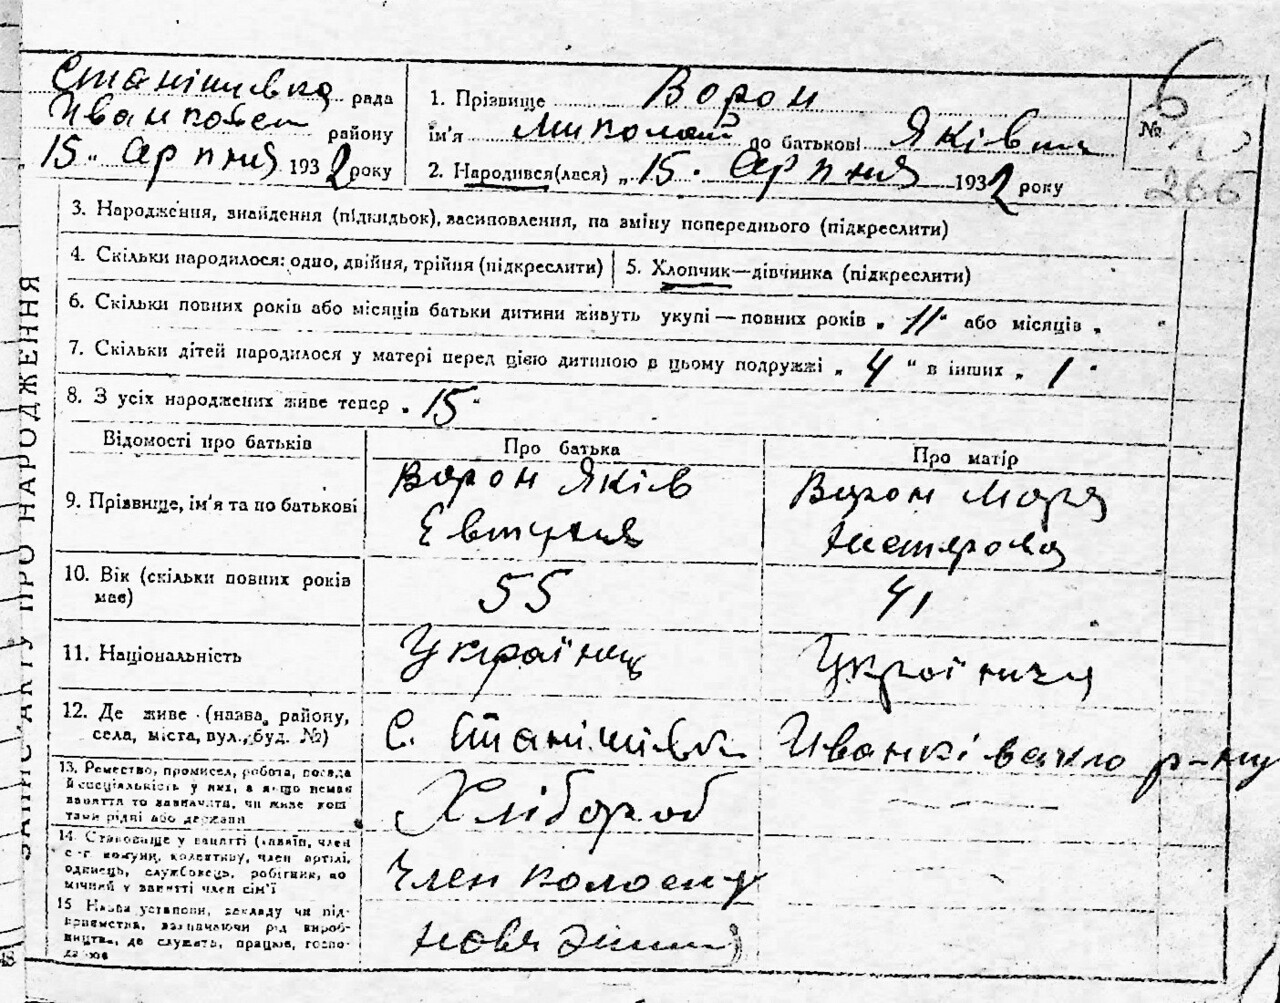 Станішевка рада
Іванков району
„15" Серпня 1932 року
1. Прізвище Ворон
ім'я Миколай по батькові Яківич
2. Народився(лася) „15. Серпня 1932 року
№ 6
266
3. Народження, знайдення (підкидьок), засиновлення, на зміну попереднього (підкреслити)
4. Скільки народилося: одно, двійня, трійня (підкреслити)
5. Хлопчик—дівчинка (підкреслити)
6. Скільки повних років або місяців батьки дитини живуть укупі — повних років „11" або місяців „ "
7. Скільки дітей народилося у матері перед цією дитиною в цьому подружжі „4" в інших „1"
8. З усіх народжених живе тепер „15"
Відомості про батьків
Про батька
Про матір
9. Прізвище, ім'я та по батькові
Ворон Яків
Ворон Маря
Нестерова
10. Вік (скільки повних років
має)
55
41
11. Національність
Українец
Українка
12. Де живе (назва району,
села, міста, вул., буд. №)
С. Станішевка
Иванківського р-ну
13. Ремество, промисел, робота, посада
й спеціяльність у них, а якщо немає
заняття то зазначити, чи живе кош
тами рідні або держави
Хлібороб
14. Становище у занятті (хазяїн, член
с-г комуни, колективу, член артілі,
одинець, службовець, робітник, по
мічний у занятті член сім'ї
Член колгоспу
15 Назва установи, закладу чи під-
приємства, зазначаючи рід вироб-
ництва, де служать, працює, госпо-
дарює
ЗАПИС АКТУ ПРО НАРОДЖЕННЯ